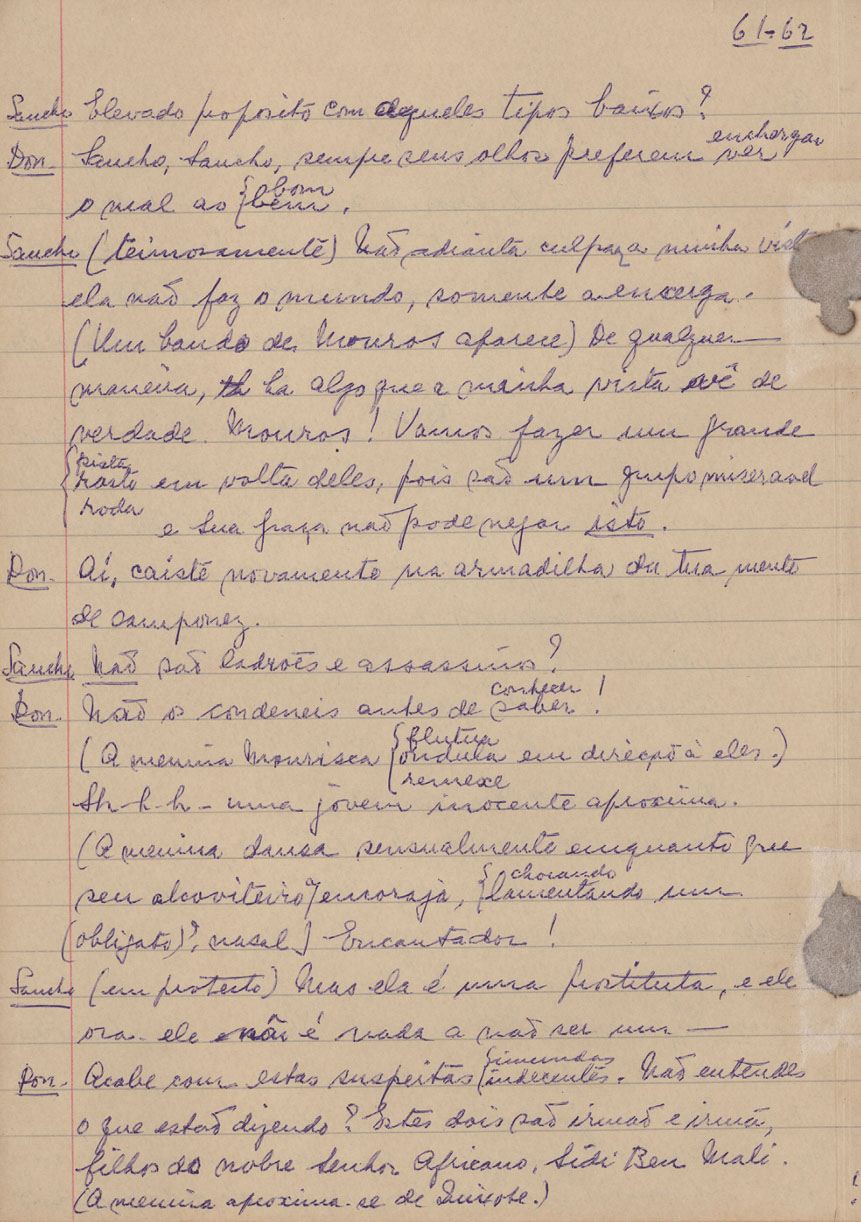 61-62
Sancho Elevado proposito com aqueles tipos baixos?
Don. Sancho, Sancho, sempre seus olhos preferem enchergar
ver
o mal ao {obom
bem.
Sancho (teimosamente) Não adianta culpar a minha vista
ela não faz o mundo, somente a enxerga.
(Um bando de Mouros aparece) De qualquer
maneira, ha algo que a minha vista vê de
verdade. Mouros! Vamos fazer um grande
{pista
rasto em volta deles, pois são um grupo miseravel
roda
e sua graça não pode negar isto.
Don. Aí, caiste novamente na armadilha da tua mente
de camponez.
Sancho Não são ladrões e assassinos?
Don. Não os condeneis antes de conhecer
saber!
(A menina Mourisca {flutua
ondula em direcção à eles.)
remexe
Sh-h-h- uma jovem inocente aproxima.
(A menina dansa sensualmente emquanto que
seu alcoviteiro a encoraja, {chorando
lamentando um
(obligato)?, nasal) Encantador!
Sancho (em protesto) Mas ela é uma prostituta, e ele
ora- ele não é nada a não ser um —
Don. Acabe com estas suspeitas {imundas
indecentes. Não entendes
o que estão dizendo? Estes dois são irmão e irmã,
filhos do nobre Senhor Africano, Sidi Ben Mali.
(A menina aproxima-se de Quixote.)